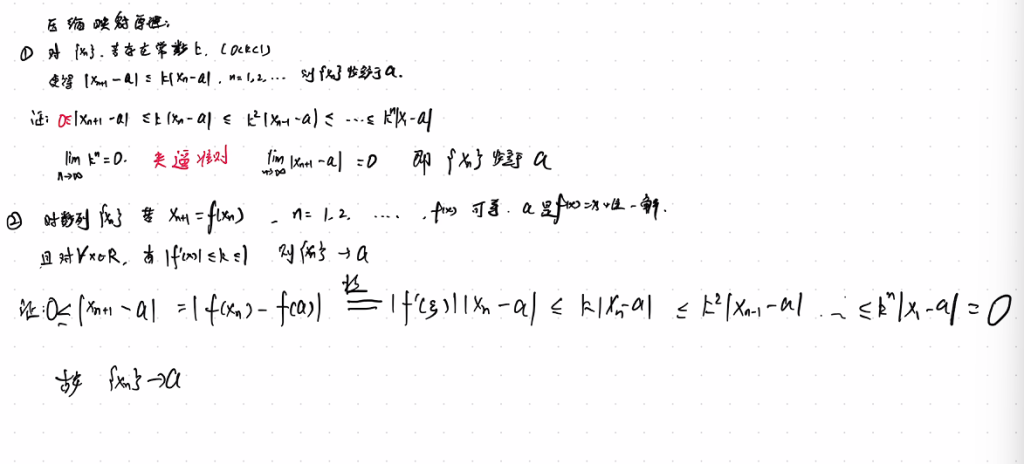 压缩映射原理:
① 对 {xₙ}, 若存在常数 k, (0<k<1)
使得 |xₙ₊₁ - a| ≤ k|xₙ - a|, n=1,2,… 则{xₙ}收敛于a.
证: 0≤|xₙ₊₁ - a| ≤ k|xₙ - a| ≤ k²|xₙ₋₁ - a| ≤ …≤ kⁿ|x₁ - a|
lim kⁿ = 0. 夹逼准则 lim |xₙ₊₁ - a| = 0 即 {xₙ} 收敛于 a
n→∞ n→∞
② 对数列 {xₙ} 若 xₙ₊₁ = f(xₙ), n = 1, 2, …, f(x) 可导, a 是 f(x)=x 唯一解.
且对 ∀x∈R, 有 |f'(x)| ≤ k ≤ 1 则{xₙ} → a
证: 0≤ |xₙ₊₁ - a| = |f(xₙ) - f(a)| = |f'(ξ)||xₙ - a| ≤ k|xₙ - a| ≤ k²|xₙ₋₁ - a| … ≤ kⁿ|x₁ - a| = 0
故 {xₙ} → a